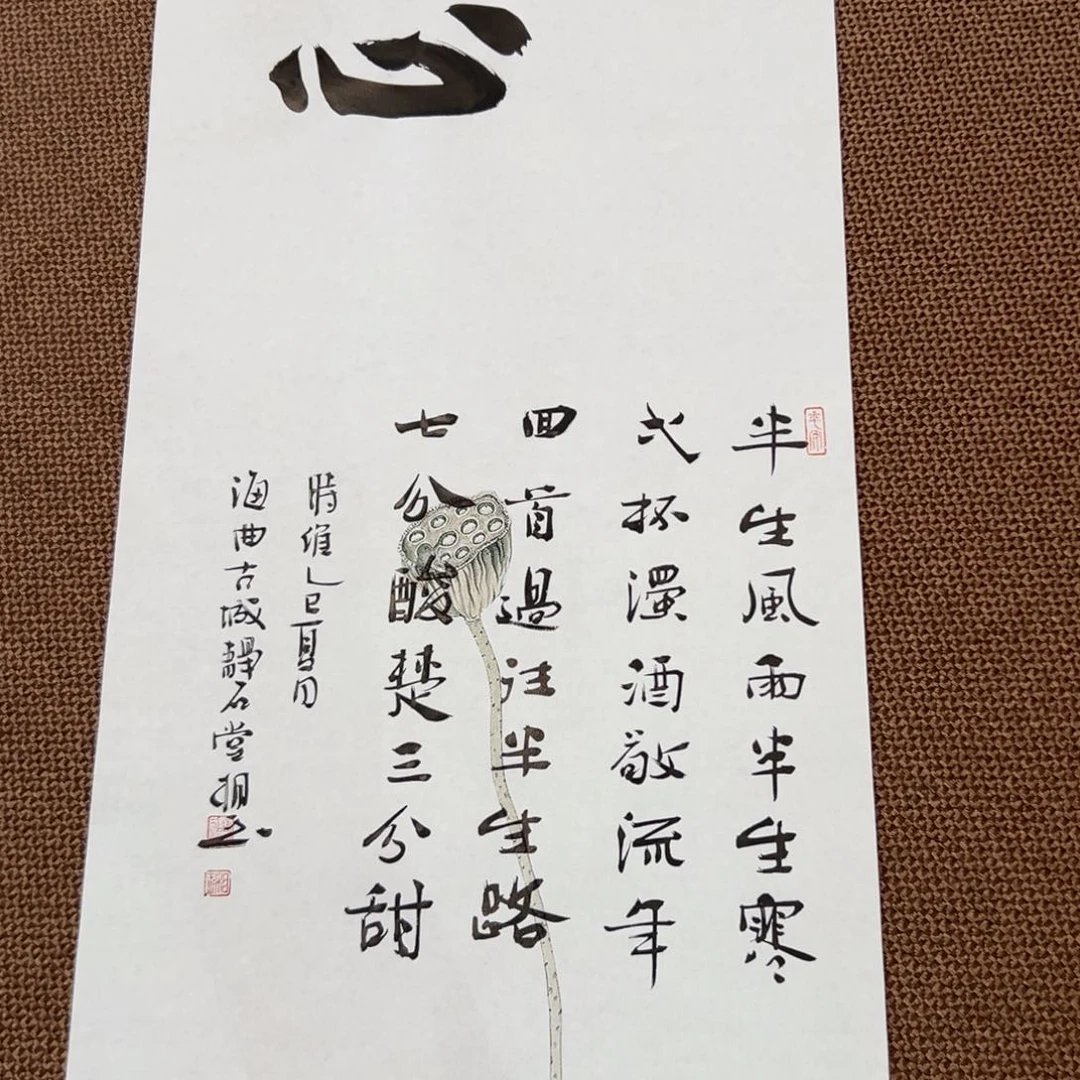 心
半生風雨半生寒
弌杯濁酒敬流年
回首過往半生路
七分酸楚三分甜
時維乙巳夏月
海曲古城靜石堂